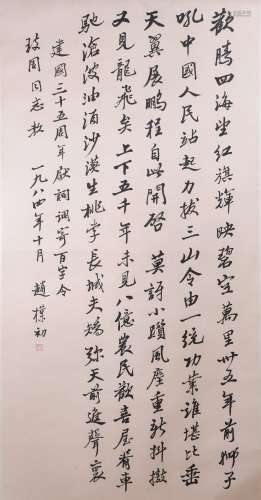 歡騰四海望紅旗輝映碧空萬里卅五年前獅子
吼中國人民站起力拔三山令由一統功業誰堪比垂
天翼展鵬程自此開啓 莫訝小躓風塵重新抖擻
又見龍飛矣上下五千年未見八億農民歡喜屋脊車
馳滄波油沙漠生桃李長城夭矯弥天前進聲裏
建國三十五周年獻詞調寄百字令
玻周同志教 一九八四年十月 趙樸初